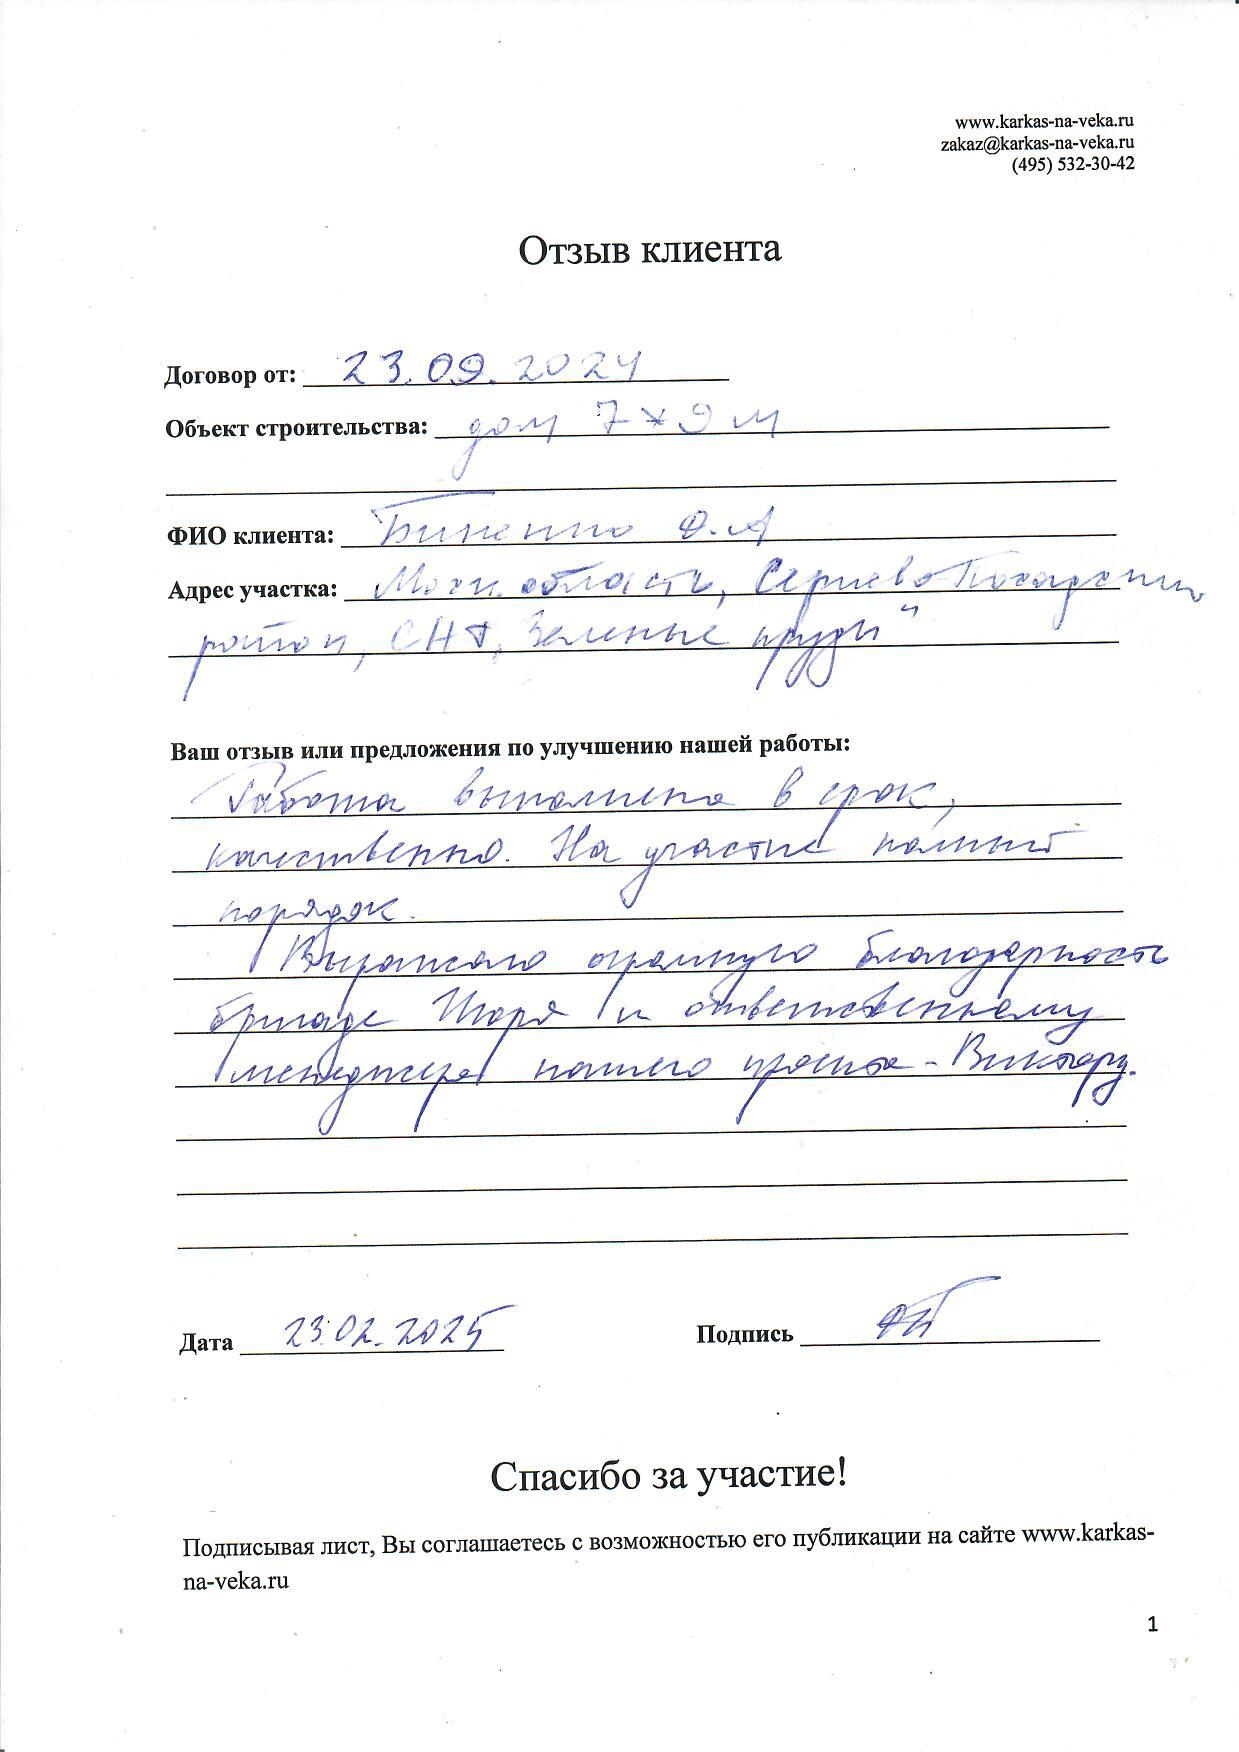 www.karkas-na-veka.ru
zakaz@karkas-na-veka.ru
(495) 532-30-42
Отзыв клиента
Договор от: 23.09.2024
Объект строительства: дом 7*9 м
ФИО клиента: Д.А
Адрес участка: Моск. область, Сергиево Посадский
район, СНТ "Зеленые пруды"
Ваш отзыв или предложения по улучшению нашей работы:
Работа выполнена в срок,
качественно. На участке полный
порядок.
Выражаю огромную благодарность
бригаде Игоря и ответственному
менеджеру нашего проекта - Виктору.
Дата 23.02.2025 Подпись
Спасибо за участие!
Подписывая лист, Вы соглашаетесь с возможностью его публикации на сайте www.karkas-
na-veka.ru
1